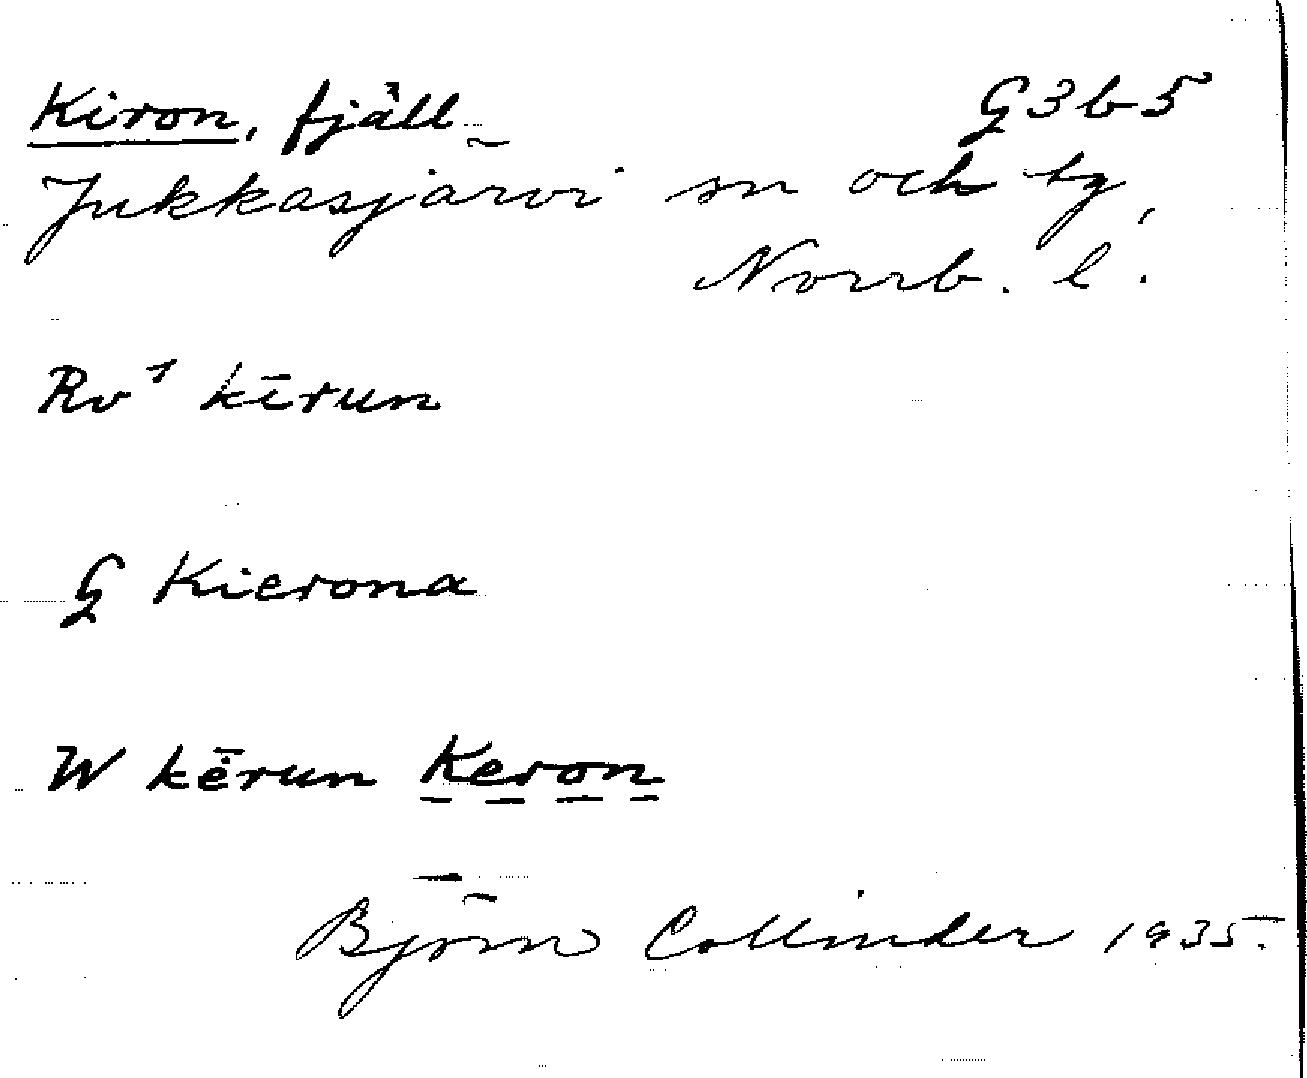 Kiron, fjäll G3b5
Jukkasjärvi sn och tg,
Norrb. l.
Rv¹ kīrun
G Kierona
W kērun Keron
Björn Collinder 1935.